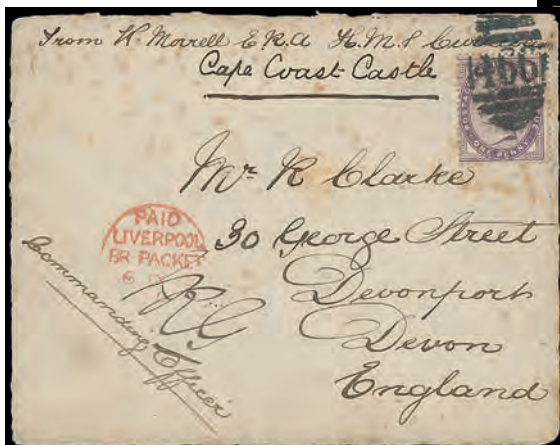 From W. Morrell E.R.A H.M.S
Cape Coast Castle
466
POSTAGE
ONE PENNY
Mr R Clarke
30 George Street
Devonport
Devon
England
PAID
LIVERPOOL
BR PACKET
6
Commanding Officer